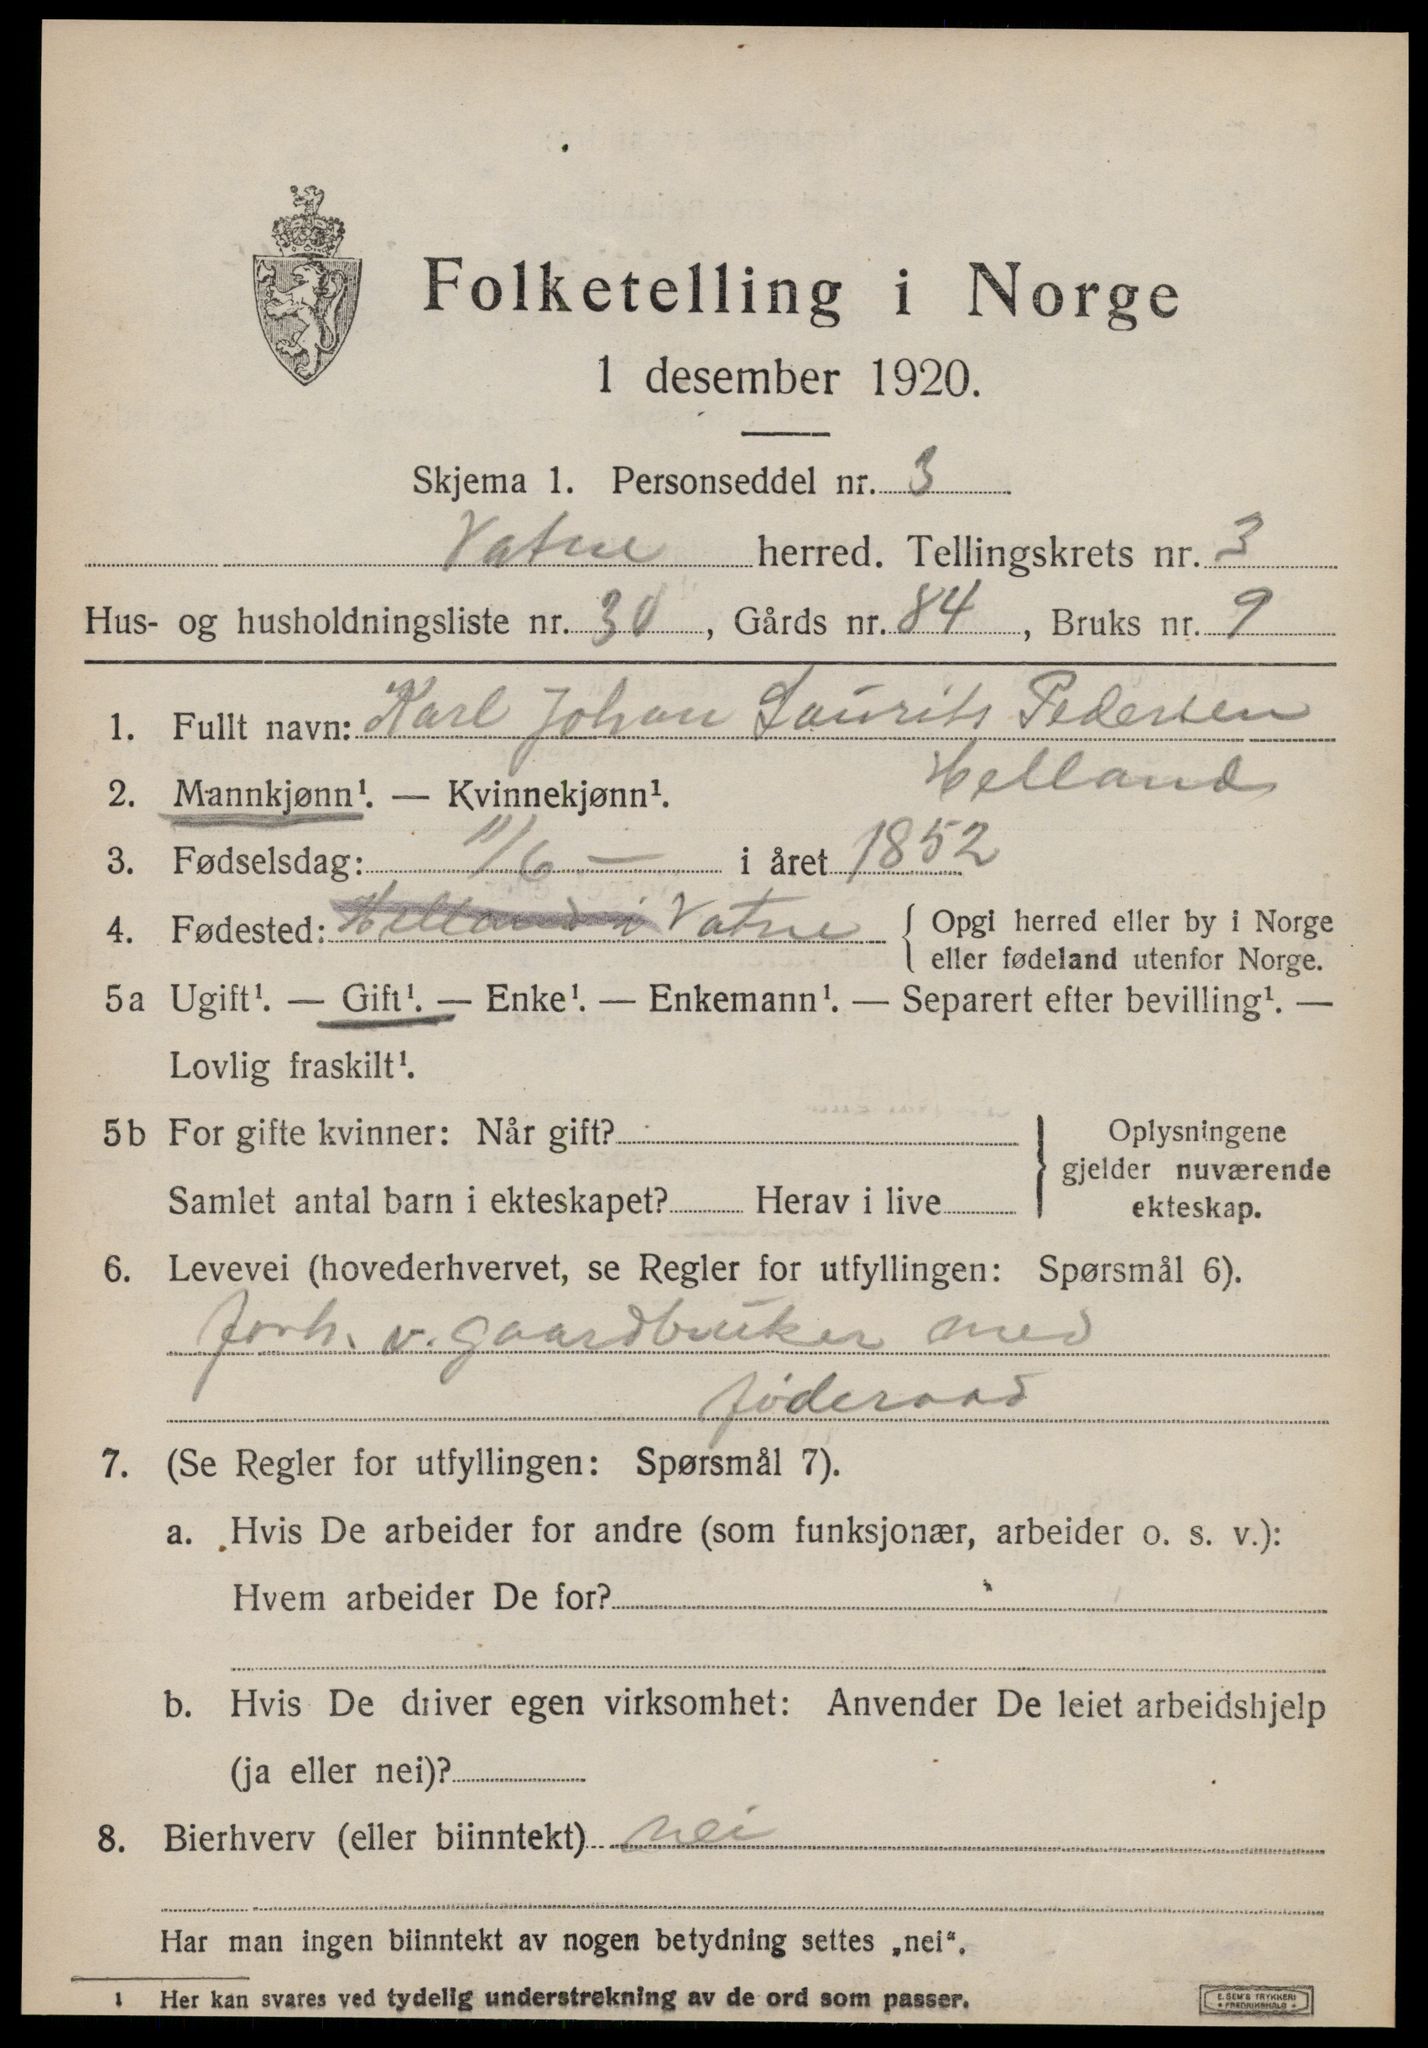 Folketelling i Norge
1 desember 1920.
Skjema 1. Personseddel nr. 3
Vatne herred. Tellingskrets nr. 3
Hus- og husholdningsliste nr. 30, Gårds nr. 84, Bruks nr. 9
1. Fullt navn: Karl Johan Laurits Pedersen
Helland
2. Mannkjønn¹. — Kvinnekjønn¹.
3. Fødselsdag: 11/6 — i året 1852
4. Fødested: Helland i Vatne { Opgi herred eller by i Norge
eller fødeland utenfor Norge.
5a Ugift¹. — Gift¹. — Enke¹. — Enkemann¹. — Separert efter bevilling¹. —
Lovlig fraskilt¹.
5b For gifte kvinner: Når gift?
Samlet antal barn i ekteskapet? Herav i live
} Oplysningene
gjelder nuværende
ekteskap.
6. Levevei (hovederhvervet, se Regler for utfyllingen: Spørsmål 6).
forh. v. gaardbruker med
føderaad
7. (Se Regler for utfyllingen: Spørsmål 7).
a. Hvis De arbeider for andre (som funksjonær, arbeider o. s. v.):
Hvem arbeider De for?
b. Hvis De driver egen virksomhet: Anvender De leiet arbeidshjelp
(ja eller nei)?
8. Bierhverv (eller biinntekt) nei
Har man ingen biinntekt av nogen betydning settes „nei“.
1 Her kan svares ved tydelig understrekning av de ord som passer.
E. SEM'S TRYKKERI
FREDRIKSHALD